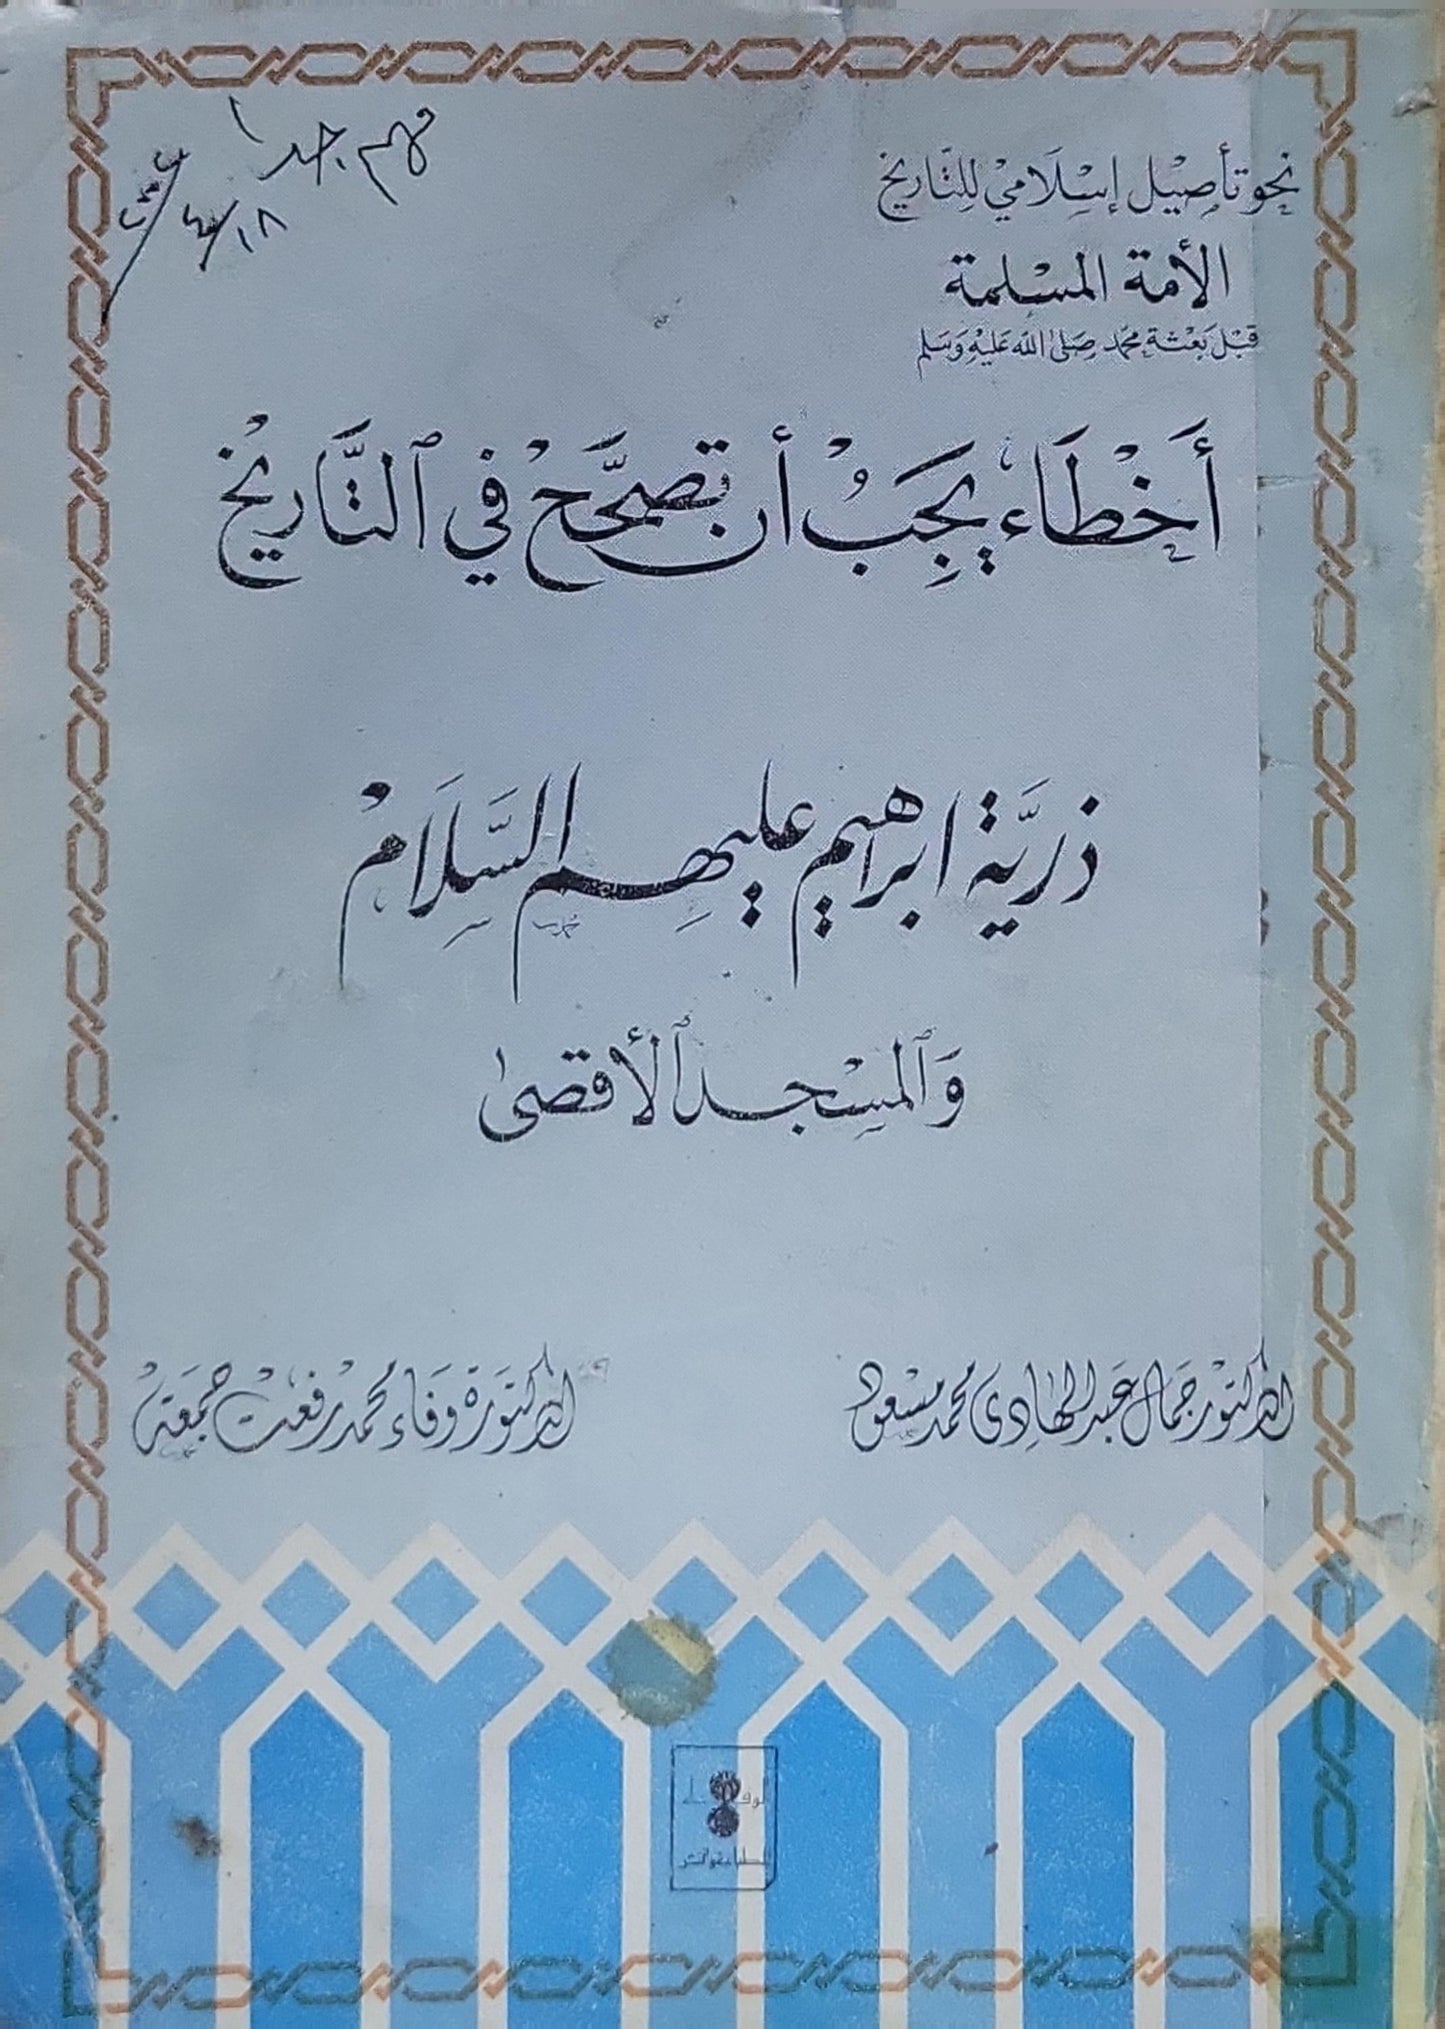 مهم جدا
نحو تأصيل إسلامي للتاريخ
الأمة المسلمة
قبل بعثة محمد صلى الله عليه وسلم
أخطاء يجب أن تصحح في التاريخ
ذرية ابراهيم عليهم السلام
والمسجد الأقصى
الدكتور جمال عبد الهادي محمد مسعود
الدكتورة وفاء محمد رفعت جمعة